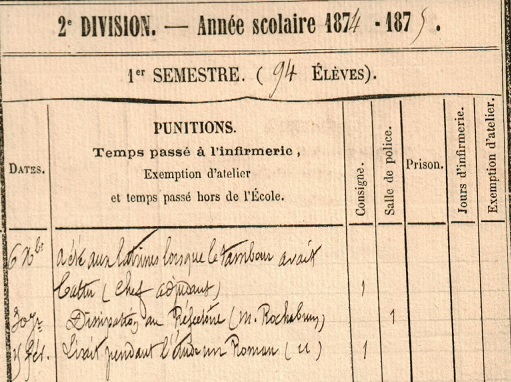 2e DIVISION. — Année scolaire 1874 - 1875.
1er SEMESTRE. (94 ÉLÈVES).
DATES.
PUNITIONS.
Temps passé à l'infirmerie,
Exemption d'atelier
et temps passé hors de l'École.
Consigne.
Salle de police.
Prison.
Jours d'infirmerie.
Exemption d'atelier.
6 Xbre a été aux latrines lorsque le tambour avait
battu (Chef adjudant) 1
Dissipation au Réfectoire (M. Rochebrun) 1
Lisait pendant l'Étude un Roman (u) 1